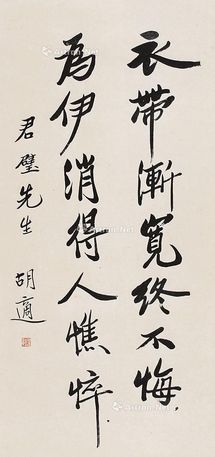 衣帶漸寬終不悔，
為伊消得人憔悴．
君璧先生
胡適